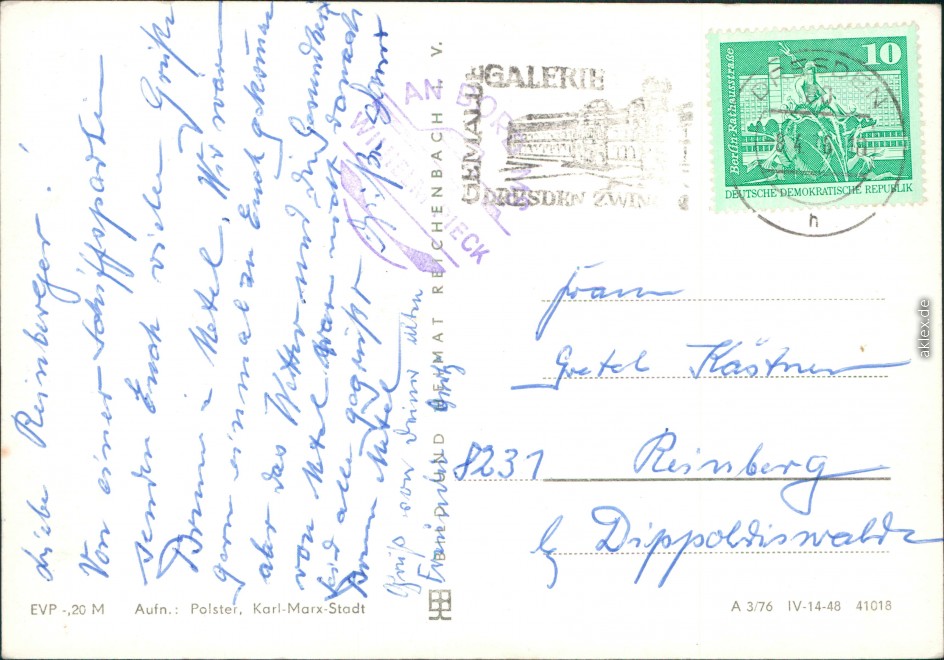 Liebe Reinberger!
Von einer Schiffspartie
senden Euch viele Grüße
Bruno u. Metel. Wir wären
gern einmal zu Euch gekommen
aber das Wetter und die Gesundheit
von Metel war nicht danach
seid alle gegrüßt
Bruno Metel
Gruß von deiner alten
AN BORD
WILHELM PIECK
GEMÄLDEGALERIE
DRESDEN ZWINGER
DRESDEN
h
10
Berlin Rathausstraße
DEUTSCHE DEMOKRATISCHE REPUBLIK
BILD UND HEIMAT REICHENBACH I. V.
Frau
Gretel Kästner
8231 Reinberg
b Dippoldiswalde
EVP -,20 M Aufn.: Polster, Karl-Marx-Stadt
A 3/76 IV-14-48 41018
aklex.de